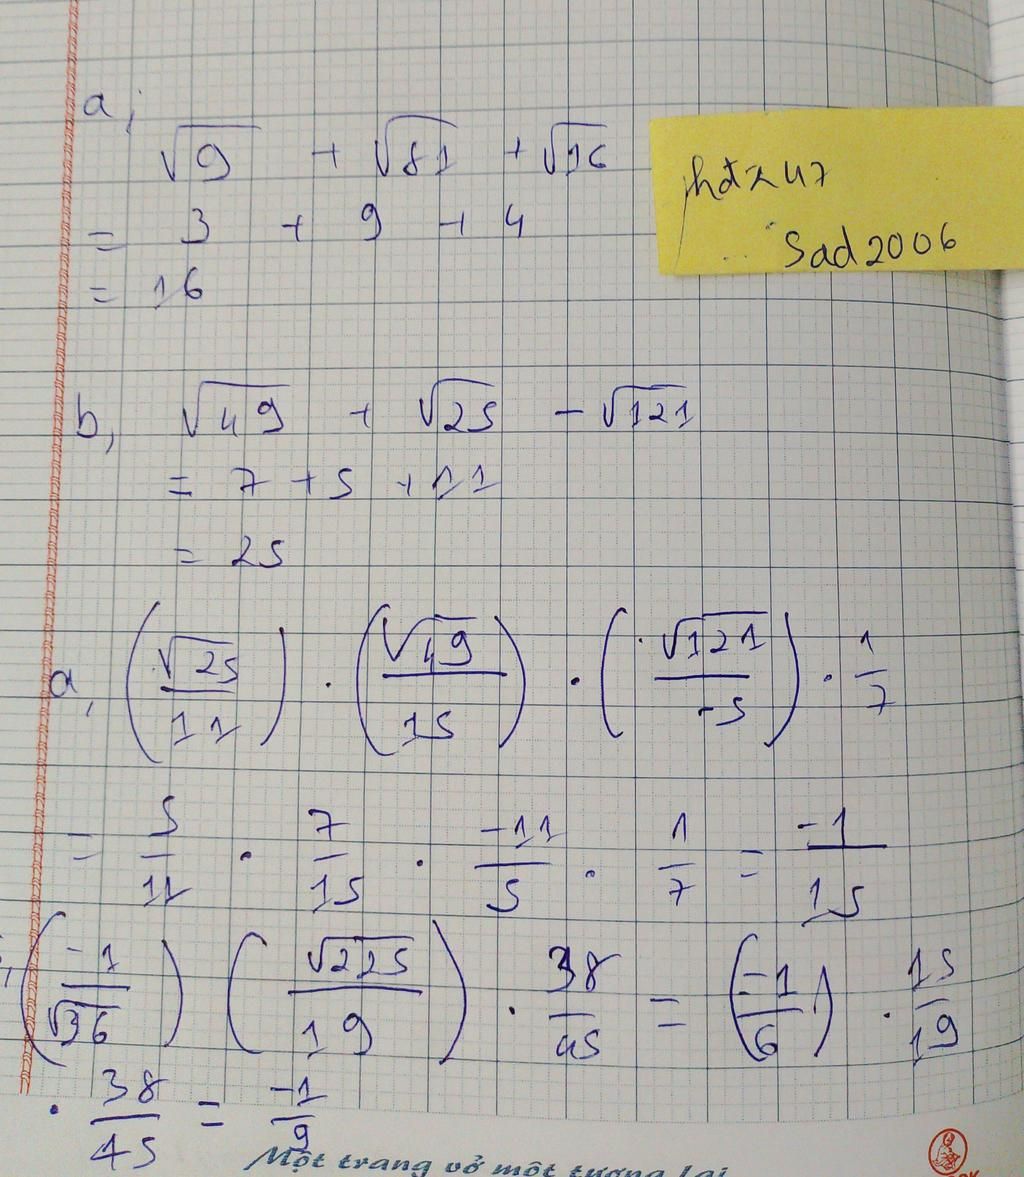 a,
√9 + √81 + √16
= 3 + 9 + 4
= 16
Sad2006
b, √49 + √25 - √121
= 7 + 5 + 11
= 25
a, (√25/11) . (√49/15) . (√121/-5) . 1/7
= 5/11 . 7/15 . -11/5 . 1/7 = -1/15
(-1/√36) (√225/19) . 38/45 = (-1/6) . 15/19
. 38/45 = -1/9
Một trang vở một tương lai